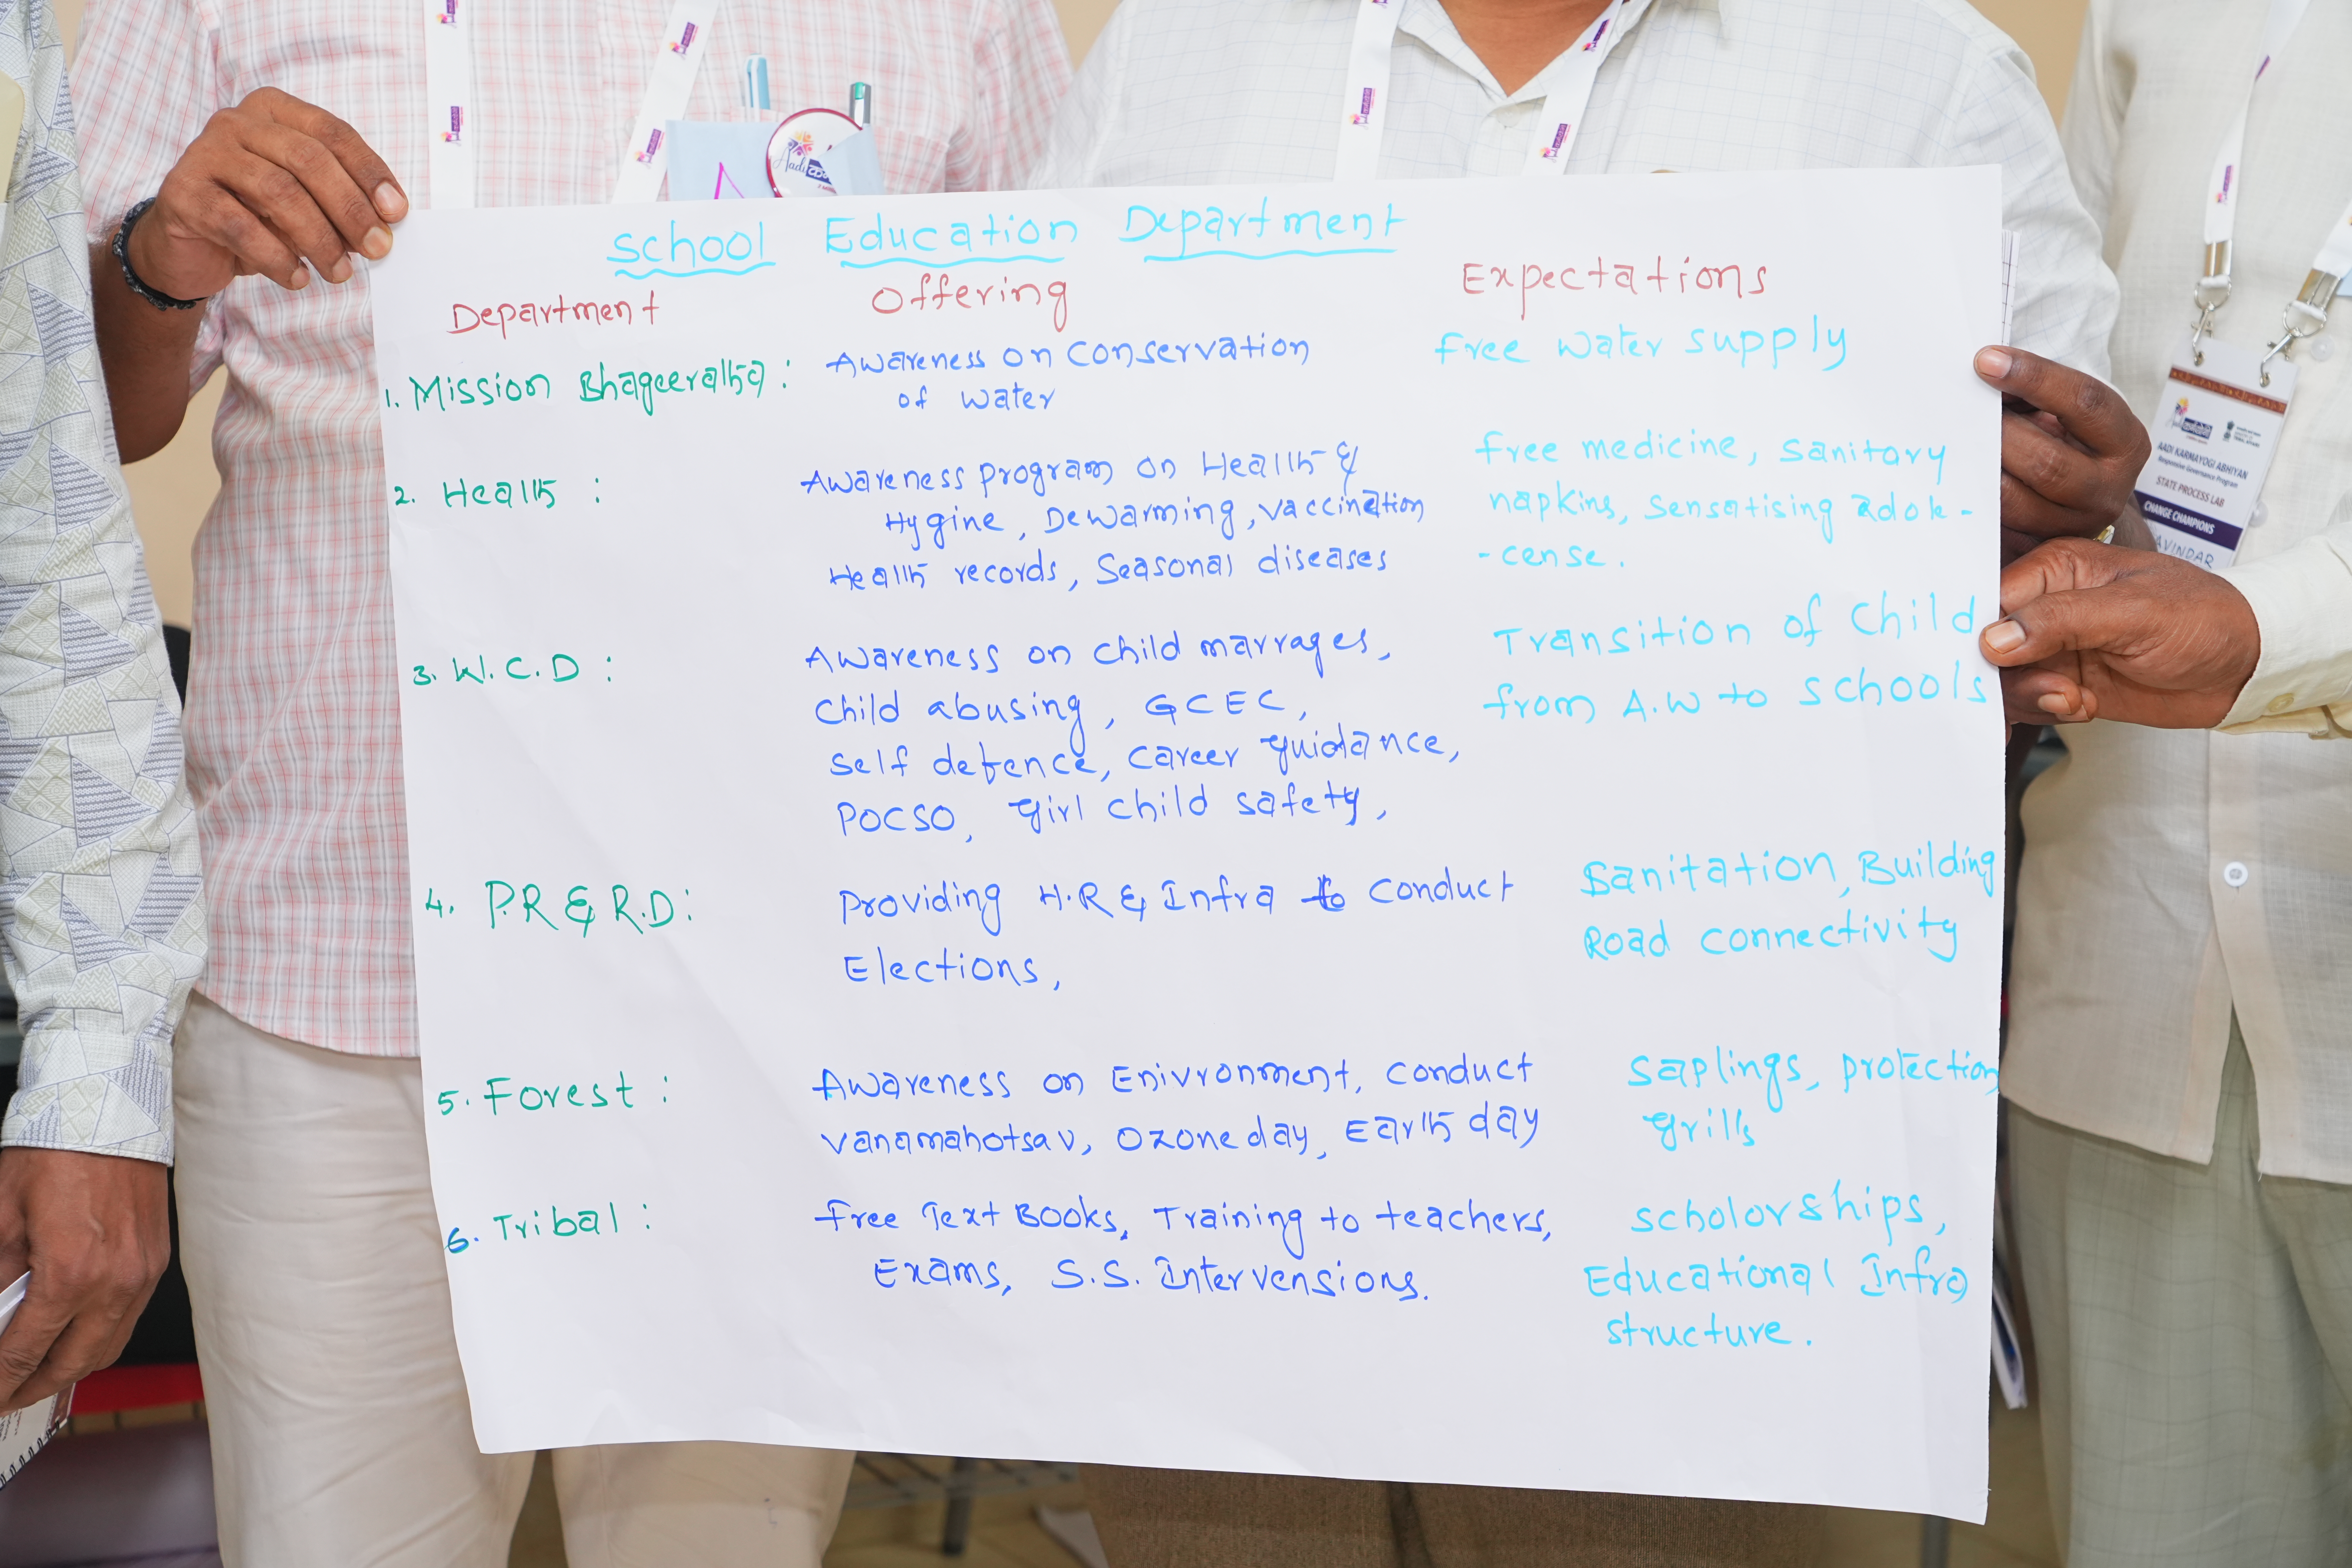 School Education Department
Department Offering Expectations
1. Mission Bhageeratha : Awareness on Conservation of water free water supply
2. Health : Awareness program on Health &
Hygine, Dewarming, vaccination
Health records, Seasonal diseases
free medicine, sanitary
napkins, sensatising adole-
-cense.
3. W.C.D : Awareness on child marrages,
child abusing, GCEC,
self defence, career guidance,
POCSO, girl child safety,
Transition of child
from A.W to schools
4. P.R & R.D : Providing H.R & Infra to conduct
Elections,
Sanitation, Building
Road connectivity
5. Forest : Awareness on Enivronment, conduct
vanamahotsav, Ozone day, Earth day
saplings, protection
grills
6. Tribal : free Text Books, Training to teachers,
Exams, S.S. Intervensions.
scholorships,
Educational Infra
structure.
AADI KARMAYOGI ABHIYAN
Responsive Governance Program
STATE PROCESS LAB
CHANGE CHAMPIONS
AVINDAR
Aadi